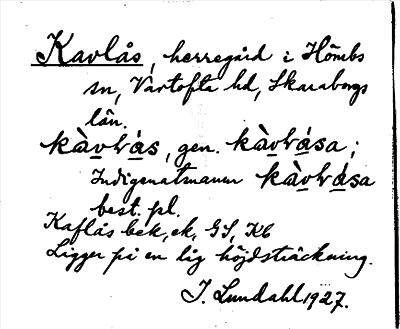 Kavlås, herregård i Hömbs
sn, Vartofta hd, Skaraborgs
län.
kàvlrás, gen. kàvlrása;
Indigenatnamn kàvlrása
best. pl.
Kaflås bek, ek, GS, Kb
Ligger på en låg höjdsträckning.
J. Lundahl 1927.